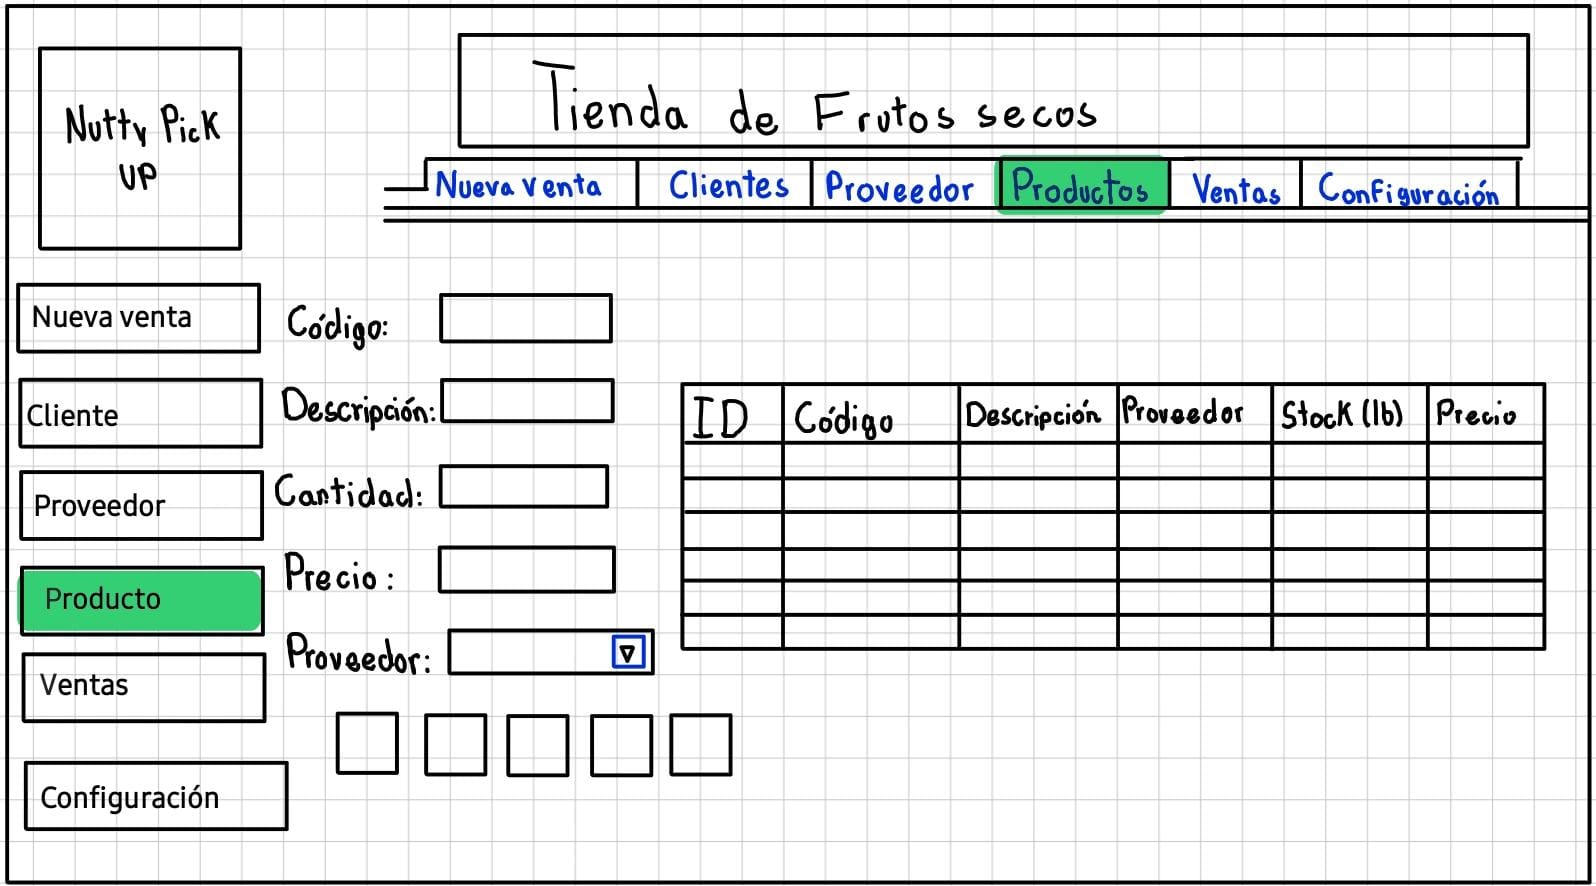 Nutty Pick
UP
Tienda de Frutos secos
Nueva venta
Clientes
Proveedor
Productos
Ventas
Configuración
Nueva venta
Cliente
Proveedor
Producto
Ventas
Configuración
Código:
Descripción:
Cantidad:
Precio:
Proveedor:
ID
Código
Descripción
Proveedor
Stock (lb)
Precio